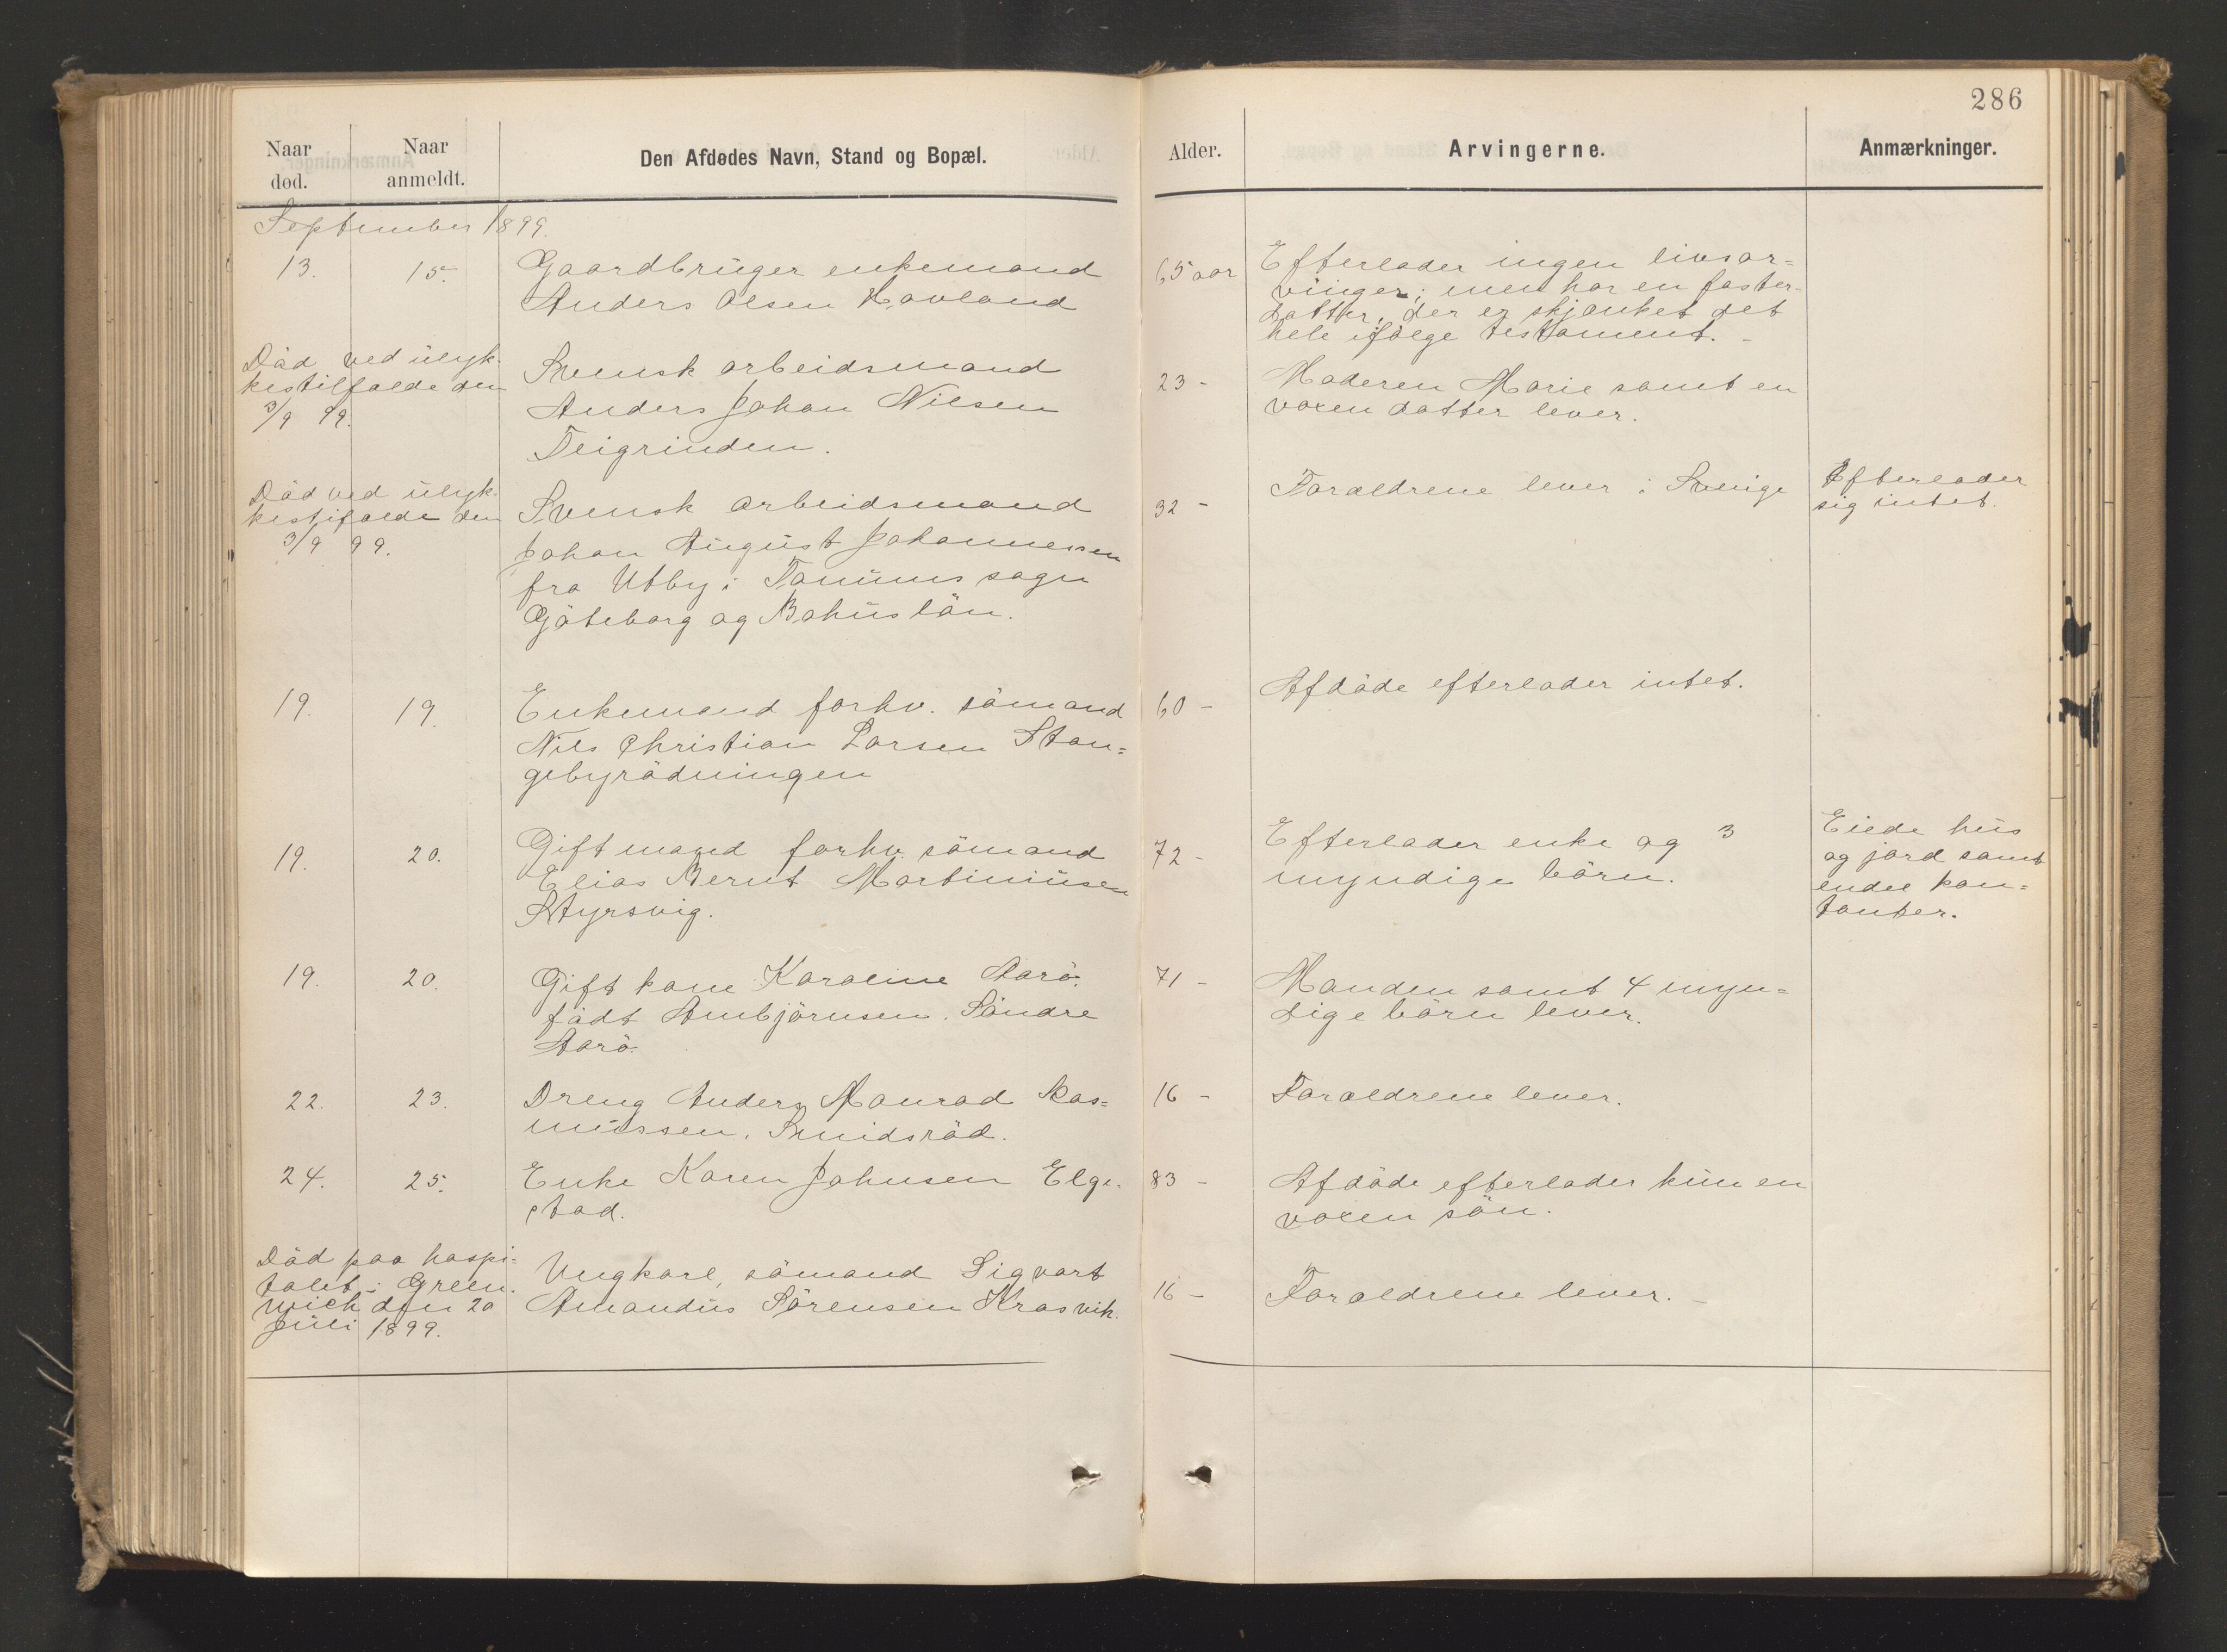 286
Naar død.
Naar anmeldt.
Den Afdødes Navn, Stand og Bopæl.
Alder.
Arvingerne.
Anmærkninger.
September 1899.
13.
15.
Gaardbruger enkemand
Anders Olsen Havland
65 aar
Efterlader ingen livsar=
vinger; men har en foster-
datter, der er skjænket det
hele ifølge testament. -
Död ved ulyk-
kestilfælde den
3/9 99.
Svensk arbeidsmand
Anders Johan Nilsen
Teigrinden.
23 -
Moderen Marie samt en
voxen datter lever.
Död ved ulyk-
kestifælde den
3/9 99.
Svensk arbeidsmand
Johan August Johannessen
fra Utby i Tanums sogn
Göteborg og Bohuslän.
32 -
Forældrene lever i Sverige
Efterlader
sig intet.
19.
19.
Enkemand forhv. sömand
Nils Christian Larsen Stan=
gebyrödningen
60 -
Afdöde efterlader intet.
19.
20.
Gift mand forhv. sömand
Elias Bernt Martiniusen
Styrsvig.
72 -
Efterlader enke og 3
myndige börn.
Eiede hus
og jord samt
endel kon=
tanter.
19.
20.
Gift kone Karoline Aarö.
födt Ambjörnsen. Söndre
Aarö.
71 -
Manden samt 4 myn=
dige börn lever.
22.
23.
Dreng Anders Konrad Ras=
mussen. Smidsröd.
16 -
Forældrene lever.
24.
25.
Enke Karen Johnsen Elge-
stad.
83 -
Afdöde efterlader kun en
voxen sön.
Död paa hospi=
talet i Green-
wich den 20
Juli 1899.
Ungkarl, sömand Sigvart
Amandus Sörensen Krosvik.
16 -
Forældrene lever. -